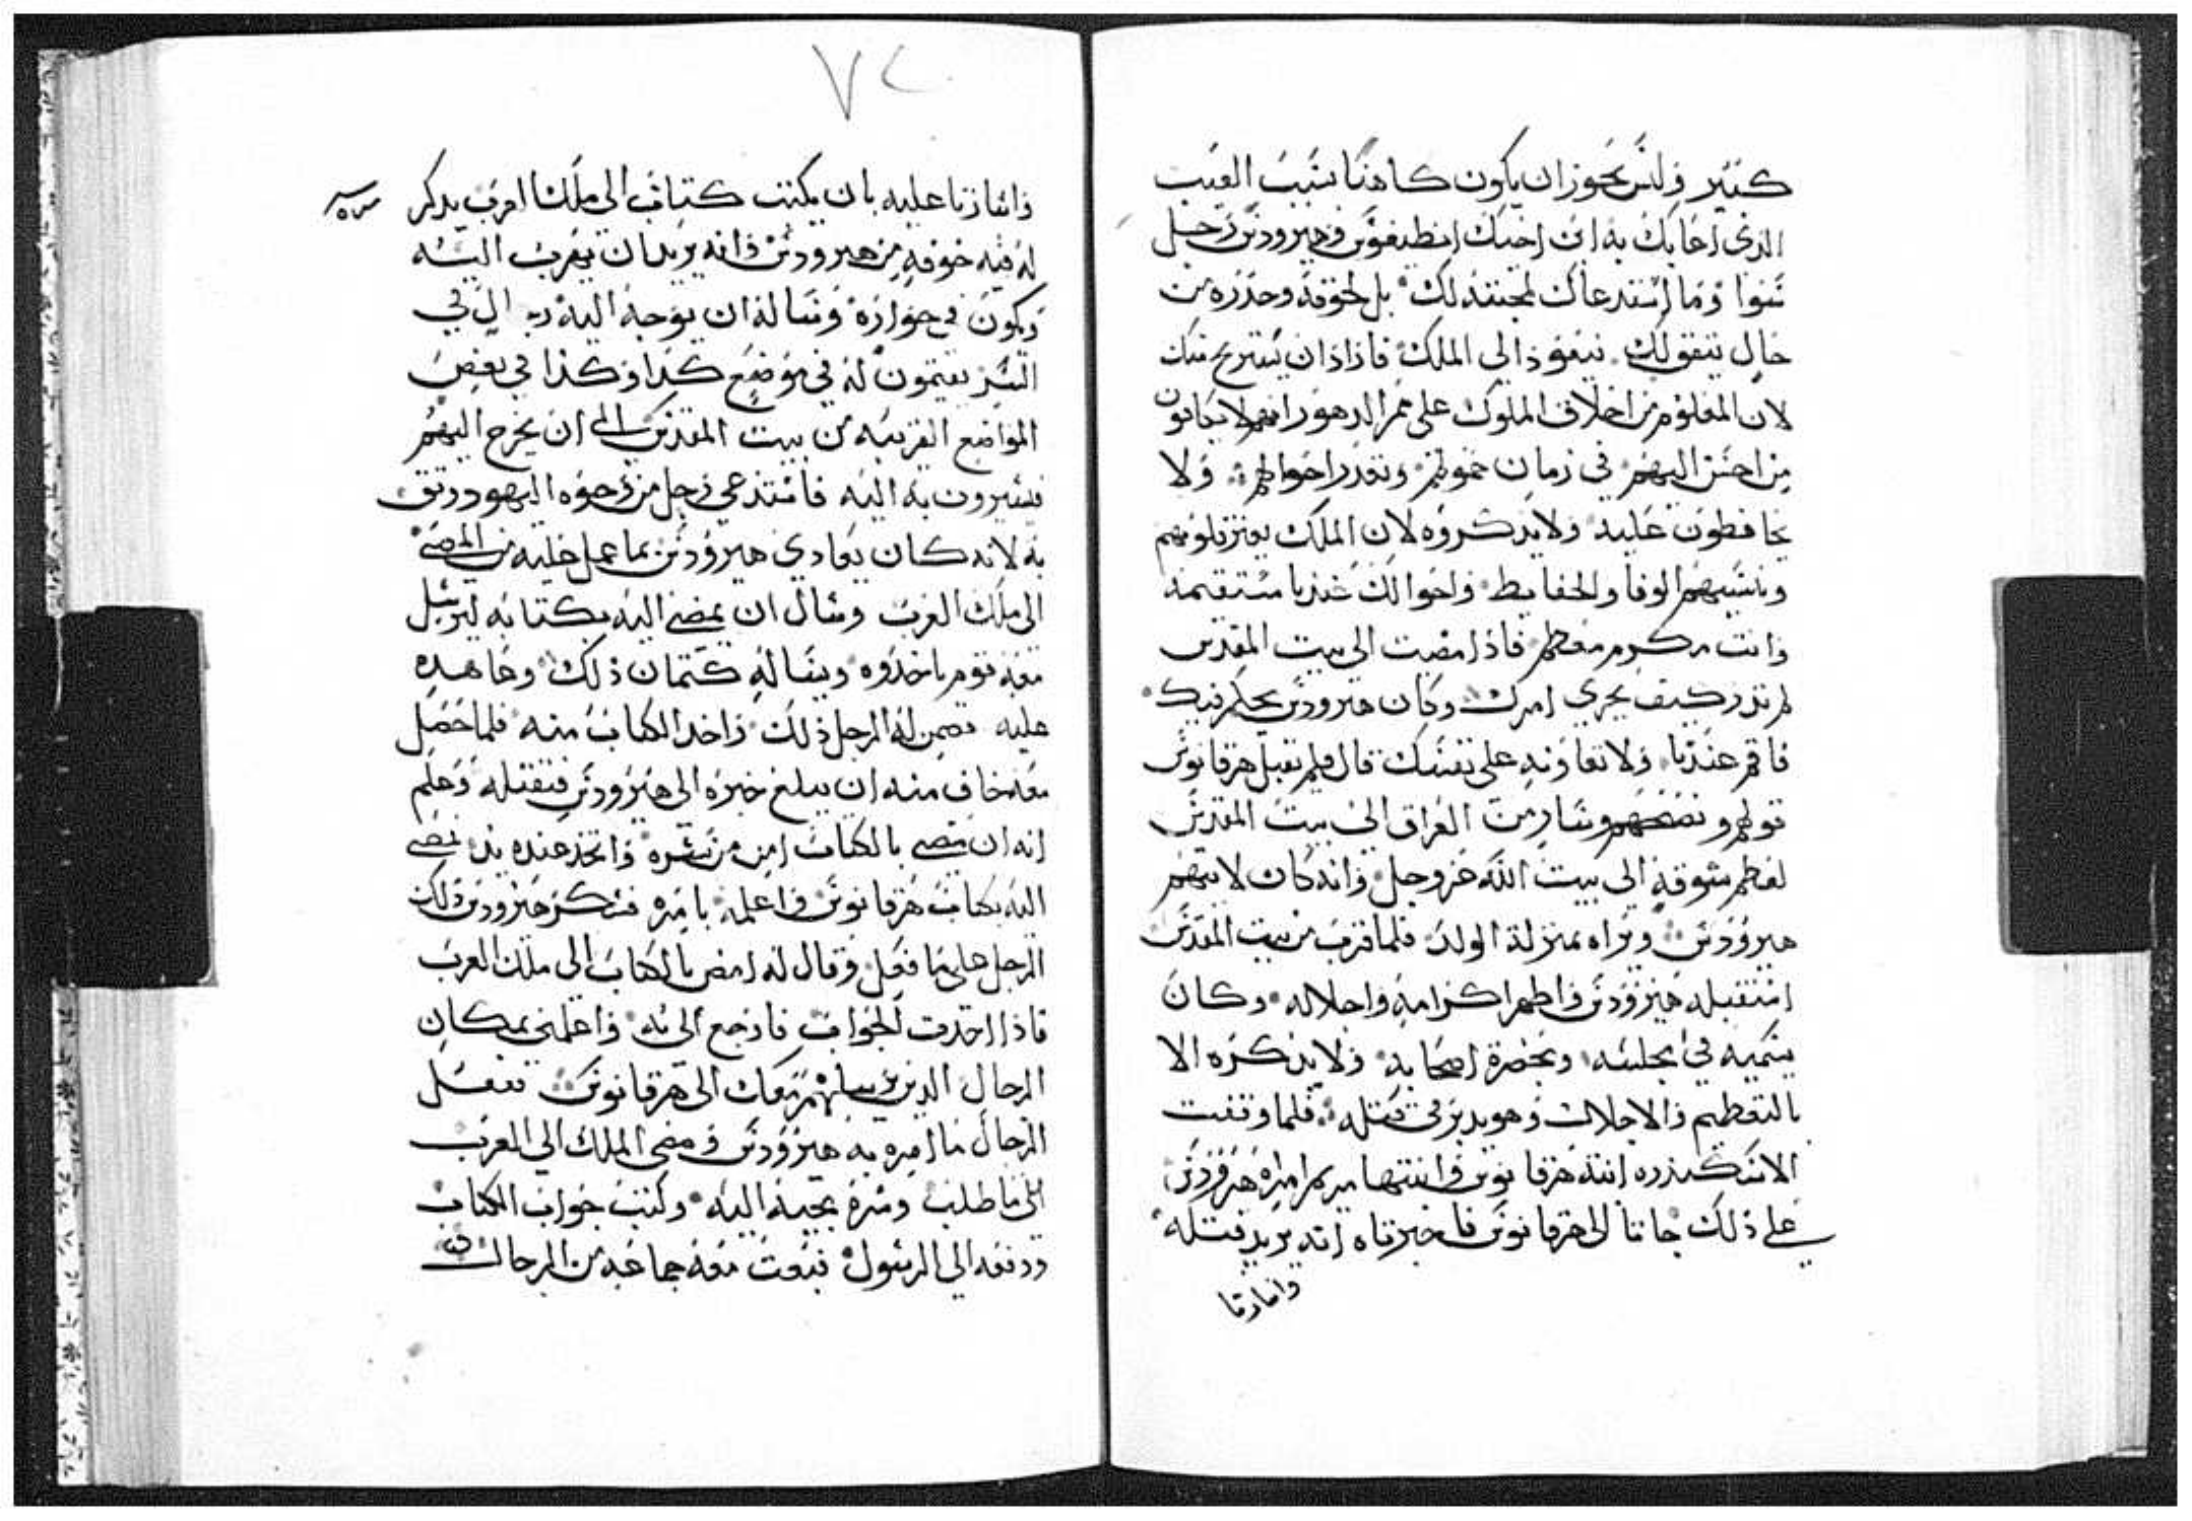 كبير وليس يجوز ان يكون كاهنا بسبب العيب
الذى اعابك به ابن اخيك انطيغوس وهيرودس رجل
سوا وما استدعاك لمحبته لك بل لخوفه وحذره من
حال تتفق لك فتعود الى الملك فاراد ان يستريح منك
لان المعلوم من اخلاق الملوك على ممر الدهور انهم لا يكافون
من احسن اليهم في زمان خمولهم وتعذر احوالهم ولا
يحافطون عليه ولا يذكروه لان الملك يغير قلوبهم
وينسيهم الوفا والحفايط واحوالك عندنا مستقيمه
وانت مكرم معظم فاذا مضيت الى بيت المقدس
لم تدر كيف يجري امرك وكان هيرودس يحكم فيك
فاقم عندنا ولا تعاونه على نفسك قال فلم يقبل هرقانوس
قولهم ونصحهم وسار من العراق الى بيت المقدس
لعظم شوقه الى بيت الله عز وجل وانه كان لا يتهم
هيرودس ويراه بمنزلة الولد فلما قرب من بيت المقدس
استقبله هيرودس واطهر اكرامه واجلاله وكان
يسميه في مجلسه وبحضرة اصحابه ولا يذكره الا
بالتعظيم والاجلال وهو يدبر في قتله فلما وقفت
الاسكندره ابنة هرقانوس وابنتها مريم امراة هيرودس
على ذلك جاتا الى هرقانوس فاخبرتاه انه يريد قتله
واشارتا
٧٢
واشارتا عليه بان يكتب كتاب الى ملك العرب يذكر
له فيه خوفه من هيرودس وانه يريد ان يهرب اليه
ويكون في جواره وسالة ان يوجه اليه رجال في
السر يقيمون له في موضع كذا وكذا في بعض
المواضع القريبه من بيت المقدس الى ان يخرج اليهم
فيسيرون به اليه فاستدعي رجل من وجوه اليهود وثق
به لانه كان يعادي هيرودس بما عمل عليه من المضي
الى ملك العرب وسال ان يمضى اليه بكتابه ليرسل
معه قوم ياخدوه وبساله كتمان ذلك وعاهده
عليه فضمن له الرجل ذلك واخد الكتاب منه فلما حصل
معه خاف منه ان يبلغ خبره الى هيرودس فيقتله وعلم
انه ان مضى بالكتاب امن من شره واتخذ عنده يد فمضى
اليه بكتاب هرقانوس واعلمه بامره فشكر هيرودس ذلك
الرجل على ما فعل وقال له امض بالكتاب الى ملك العرب
فاذا اخدت الجواب فارجع الى به واعلمنى بمكان
الرجال الدين يرسلهم معك الى هرقانوس ففعل
الرجال ما امره به هيرودس ومضى الملك الي العرب
الى ما طلب وسره بمجيه اليه وكتب جواب الكتاب
ودفعه الى الرسول فبعث معه جماعه من الرجال